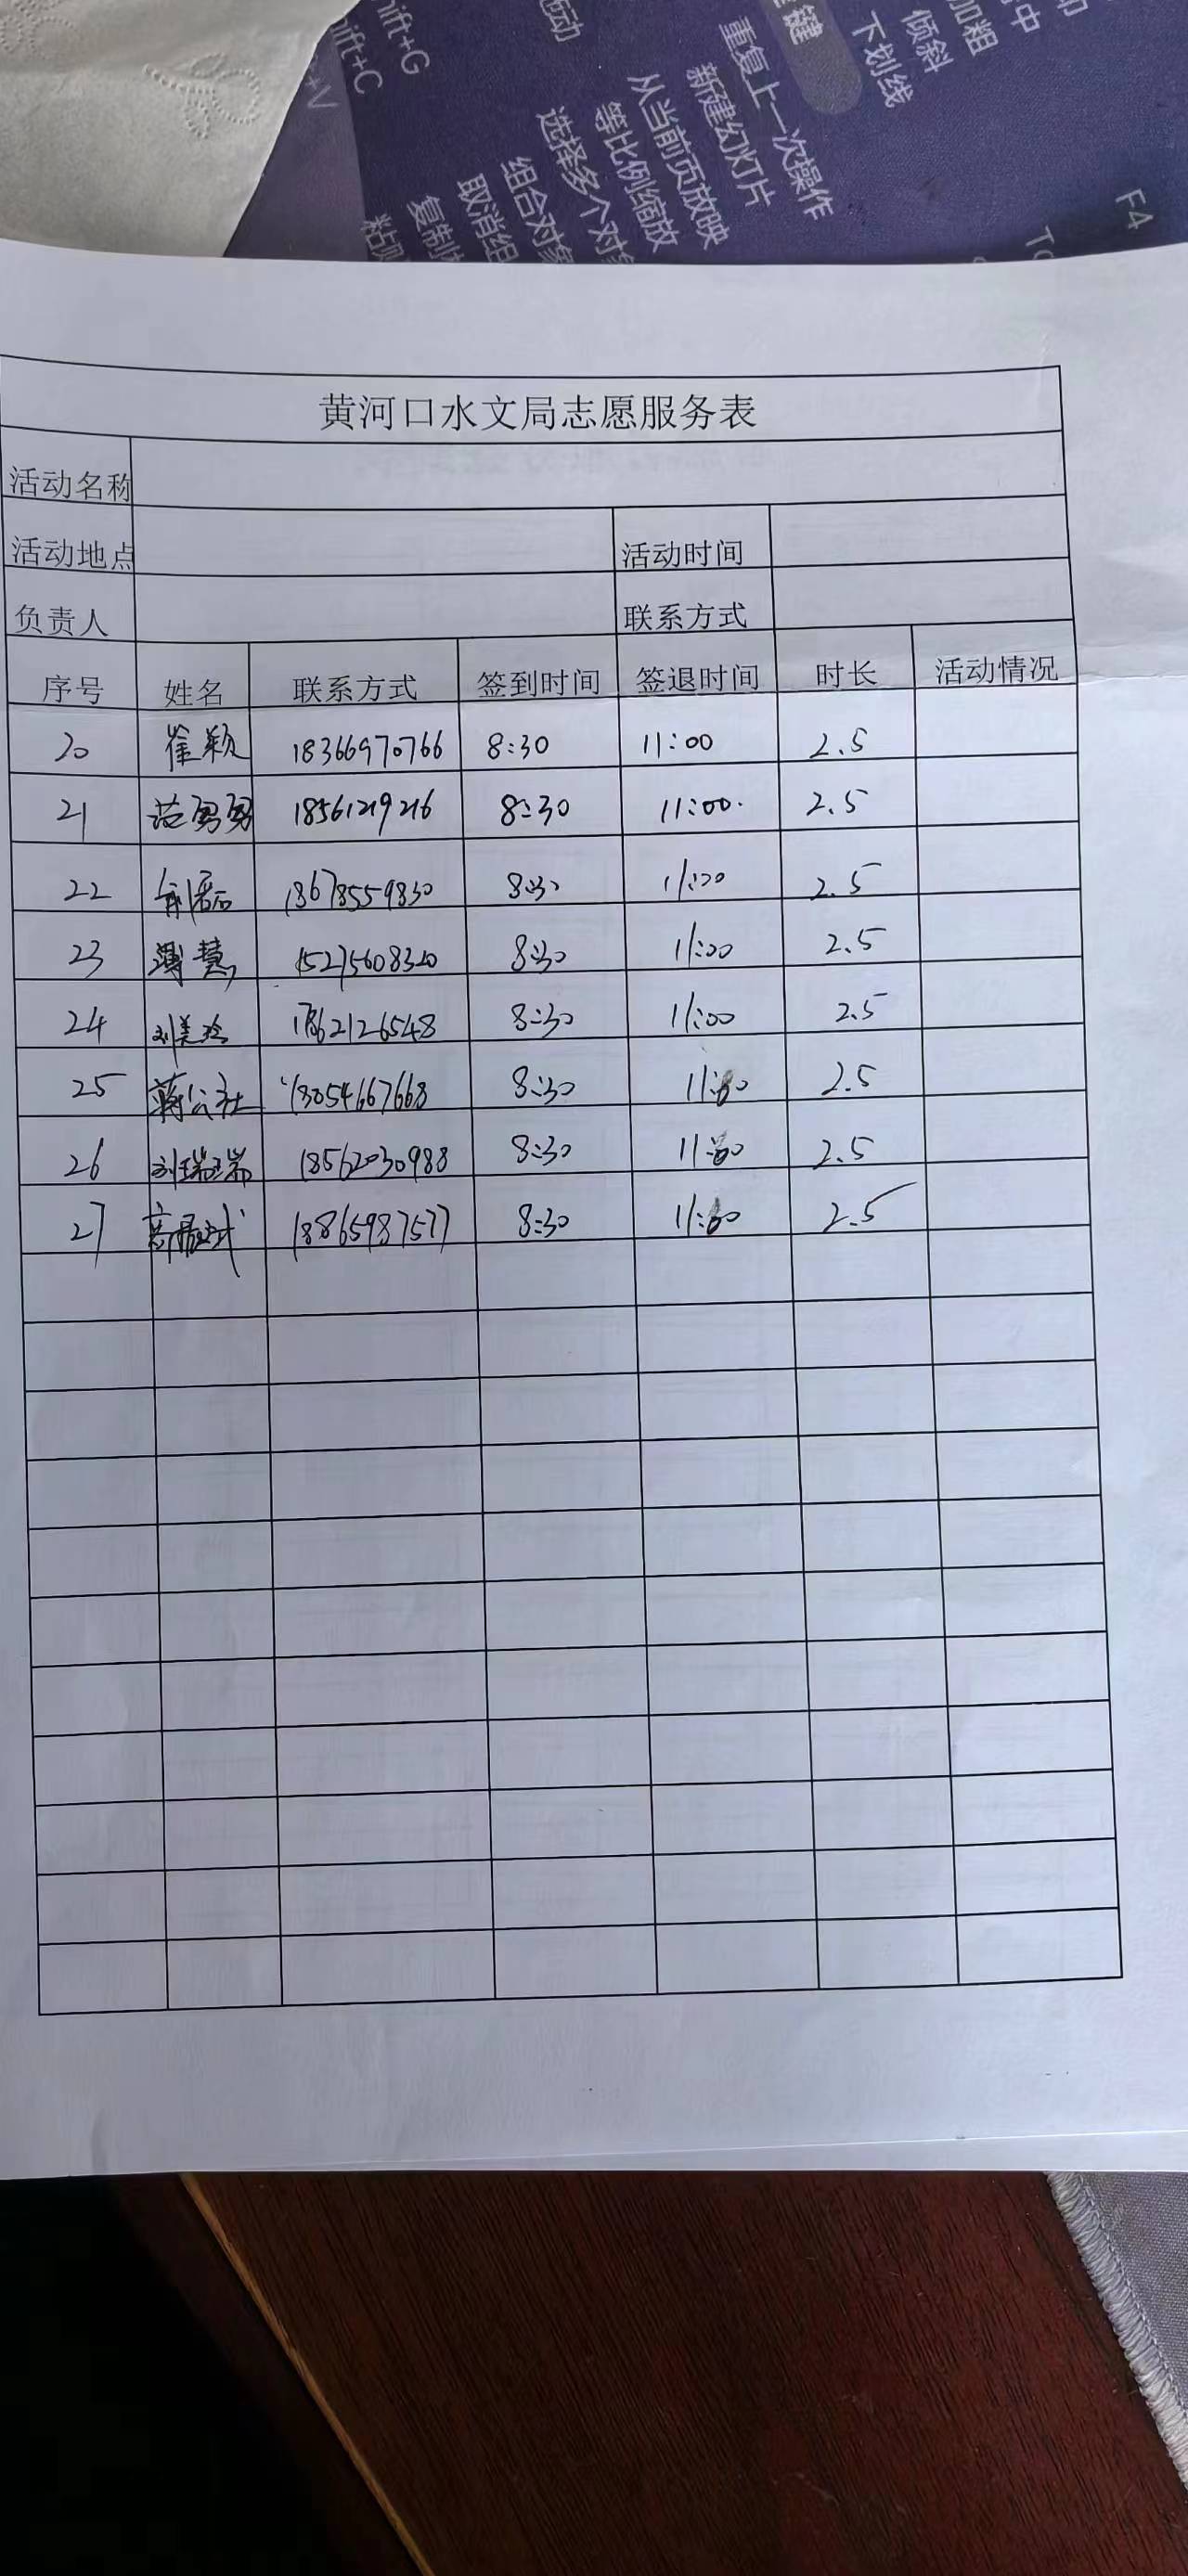 ift+G
ift+C
+V
动
键
中
加粗
倾斜
下划线
重复上一次操作
新建幻灯片
从当前页放映
等比例缩放
选择多个对象
组合对象
取消组
复制
粘贴
F4
黄河口水文局志愿服务表
活动名称
活动地点 活动时间
负责人 联系方式
序号 姓名 联系方式 签到时间 签退时间 时长 活动情况
20 崔颖 18366970766 8:30 11:00 2.5
21 范勇勇 18561219216 8:30 11:00 2.5
22 18678559830 8:30 11:00 2.5
23 薄慧 15275608320 8:30 11:00 2.5
24 刘美玲 17862126548 8:30 11:00 2.5
25 蒋公社 13054667668 8:30 11:00 2.5
26 刘瑞瑞 18562030988 8:30 11:00 2.5
27 18865987577 8:30 11:00 2.5